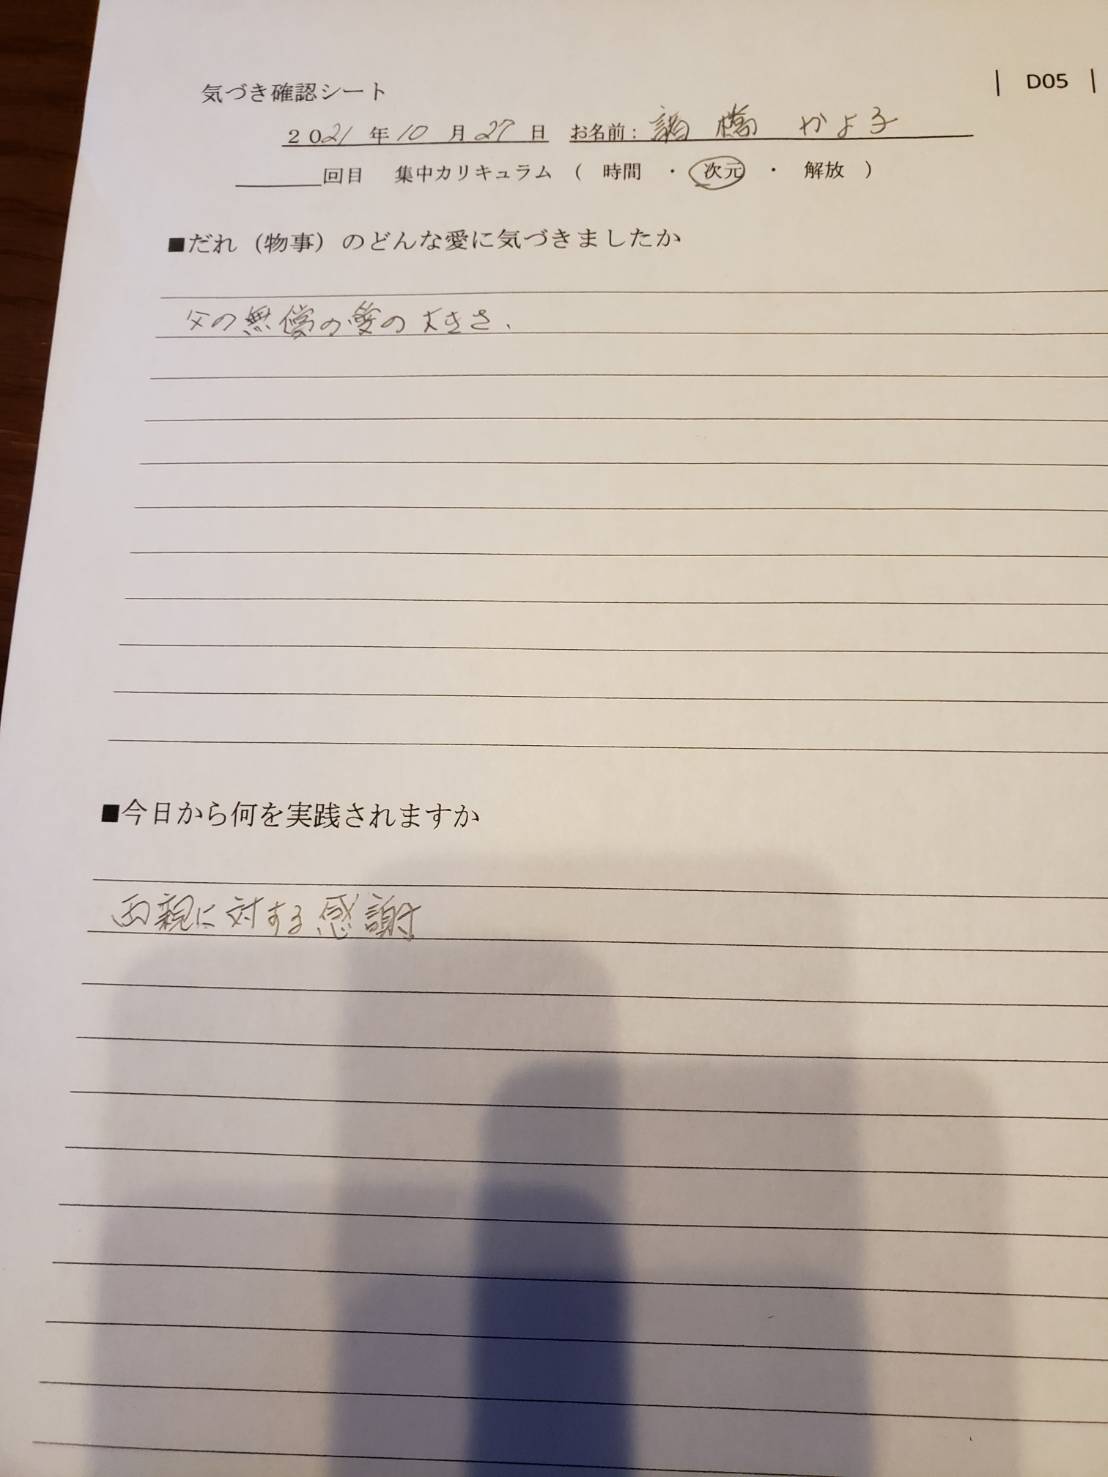 | D05 |
気づき確認シート
2021年10月27日 お名前: 橋 かよ子
回目 集中カリキュラム ( 時間 ・ 次元 ・ 解放 )
■だれ（物事）のどんな愛に気づきましたか
父の無償の愛の大きさ、
■今日から何を実践されますか
両親に対する感謝